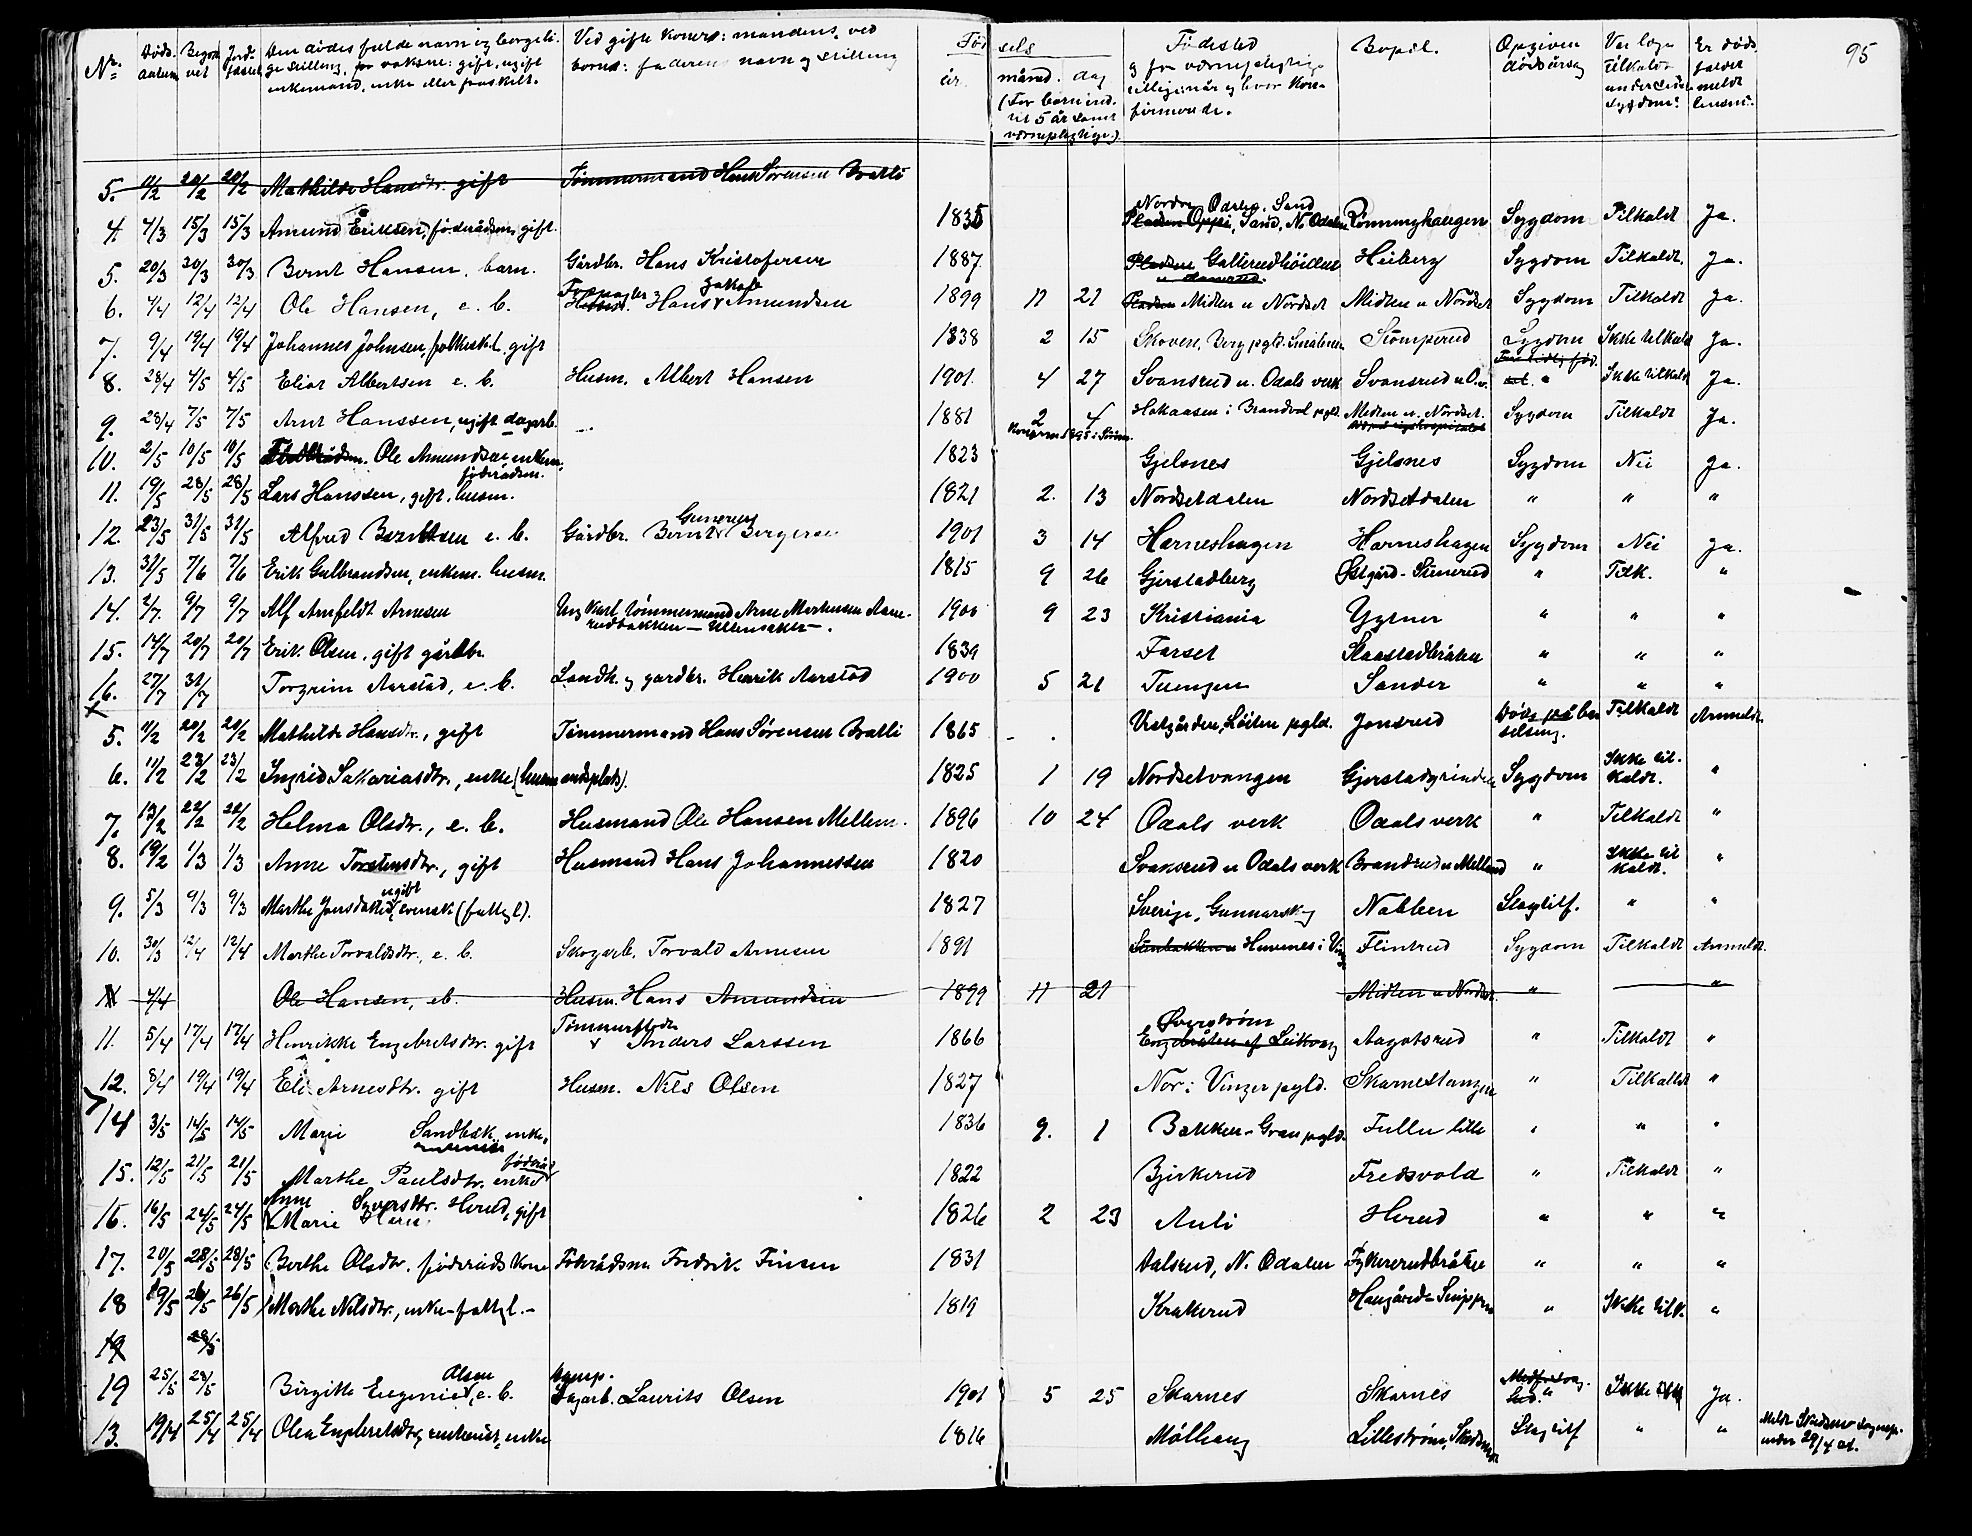 95
Nr. Døds- datum Begra- vet Jord- fæstet Den dødes fulde navn og borgerli- ge stilling, for voksne: gift, ugift enkemand, enke eller fraskilt. Ved gifte koner: mandens, ved børns: faderens navn og stilling Fød sels år. måned. dag (For børn ind- til 5 år samt værnepligtige.) Fødested Bopæl. Opgiven dødsårsag Var læge tilkaldt under sidste sygdom? Er døds- faldet meldt lensm.
5. 11/2 20/2 20/2 Mathilde Hansdtr. gift Tømmermand Hans Sørensen Bratli
4. 4/3 15/3 15/3 Amund Eriksen, føderådsm, gift. 1835 Nordre Odalen, Sand Pladsen Oppi, Sand, N. Odalen Rønninghaugen Sygdom Tilkaldt Ja.
5. 20/3 30/3 30/3 Bernt Hansen, barn. Gårdbr. Hans Kristofersen 1887 Pladsen Galterudhöiden Heiberg Sygdom Tilkaldt. Ja.
6. 4/4 12/4 12/4 Ole Hansen, e. b. Hans Jakob Amundsen 1899 11 21 Pladsen Midten u Nordset Midten u Nordset Sygdom Tilkaldt Ja.
7. 9/4 19/4 19/4 Johannes Johnsen, folkeskl. gift 1838 2 15 Skoven, Berg pgld. Smålenene Stomperud Sygdom Ikke tilkaldt Ja.
8. 28/4 4/5 4/5 Elias Albertsen e. b. Husm. Albert Hansen 1901 4 27 Svansrud u. Odals verk Svansrud u. O.v. For tidlig fød. Ikke tilkaldt Ja.
9. 28/4 7/5 7/5 Arnt Hanssen, ugift dagarb. 1881 2 4 Hokaasen i Brandval pgld. Midten u. Nordset. Sygdom Tilkaldt Ja.
10. 2/5 10/5 10/5 Ole Amundsen enkem, føderådsm. 1823 Gjelsnes Gjelsnes Sygdom Nei Ja.
11. 19/5 28/5 28/5 Lars Hanssen, gift, husm. 1821 2. 13 Nordsetdalen Nordsetdalen " " "
12. 23/5 31/5 31/5 Alfred Berntsen e. b. Gårdbr. Bernt Gunerius Bergersen 1901 3 14 Horneshagen Horneshagen Sygdom Nei Ja.
13. 31/5 7/6 7/6 Erik Gulbrandsen, enkem. husm. 1815 9 26 Gjerstadberg Østgård - Sünerud " Tilk. "
14. 2/7. 9/7 9/7 Alf Arnfeldt Arnesen Ung Karl tömmermand Arne Mortensen - Ullensaker -. 1900 9 23 Kristiania Ygtner " " "
15. 14/7 20/7 20/7 Erik Olsen, gift gårdbr. 1839 Farset Skaastadbråten " " "
16. 27/7 31/7 Torgrim Aarstad, e. b. Landh. og gardbr. Henrik Aarstad 1900 5 21 Tuengen Sander " " "
5. 11/2 20/2 20/2 Mathilde Hansdtr., gift Tömmermand Hans Sørensen Bratli 1865 Vestgården, Löiten pgld. Jonsrud Död på bar selseng. Tilkaldt Anmeldt.
6. 11/2 23/2 23/2 Ingrid Sakariasdtr., enke (husmandsplads). 1825 1 19 Nordsetvangen Gjerstadgrinden Sygdom Ikke til- kaldt. "
7. 13/2 22/2 22/2 Helma Olsdtr., e. b. Husmand Ole Hansen Mellem. 1896 10 24 Odals verk Odals verk " Tilkaldt "
8. 19/2 1/3 1/3 Anne Torstensdtr., gift Husmand Hans Johannessen 1820 Svansrud u Odals verk Brandrud u Melland " Ikke til kaldt. "
9. 5/3 9/3 9/3 Marthe Jonsdatter, ugift svensk (fattigl). 1827 Sverige, Gunnarskog Nabben Slagtilf. " "
10. 30/3 12/4 12/4 Marthe Torvaldsdtr., e. b. Skogarb. Torvald Arnesen 1891 Flintrud Sygdom Tilkaldt Anmeldt.
11 4/4 Ole Hansen, eb. Husm. Hans Amundsen 1899 11 21 Midten u Nordset. " "
11. 5/4 17/4 17/4 Henrikke Engebretsdtr. gift Tömmerfløder Anders Larssen 1866 Øverström Engebråten af Leikvang Aagotsrud " Tilkaldt "
12. 8/4 19/4 19/4 Eli Arnesdtr. gift Husm. Nils Olsen 1827 Nor i Vinger pgld. Skarnestangen " Tilkaldt "
14 3/5 14/5 14/5 Marie Sandbæk, enke, 1836 9. 1 Bakken - Gran pgld. Fulle lille " " "
15. 12/5 21/5 21/5 Marthe Paulsdtr. enke föderåd 1822 Bjerkerud Fredsvold " Tilkaldt "
16. 16/5 24/5 24/5 Anne Marie Syversdtr. Herud, gift 1826 2 23 Auli Herud " " "
17. 20/5 28/5 28/5 Berthe Olsdtr. föderåds kone Föderådsm. Fredrik Finsen 1831 Aalsrud, N. Odalen Fykererudbråten " " "
18 19/5 26/5 26/5 Marthe Nilsdtr., enke - fattigl. - 1819 Krakerud " Ikke tilk. "
19 28/5
19 25/5 28/5 Birgitte Eugenie Olsen, e. b. Dagarb. Laurits Olsen 1901 5 25 Skarnes Skarnes " Ikke tilk Ja.
13. 19/4 25/4 25/4 Olea Engebretsdtr, enke 1816 Mølhaug Lilleström, Skedsmo Slagtilf " " Meldt Skedsmo sognepr. under 29/4 01.